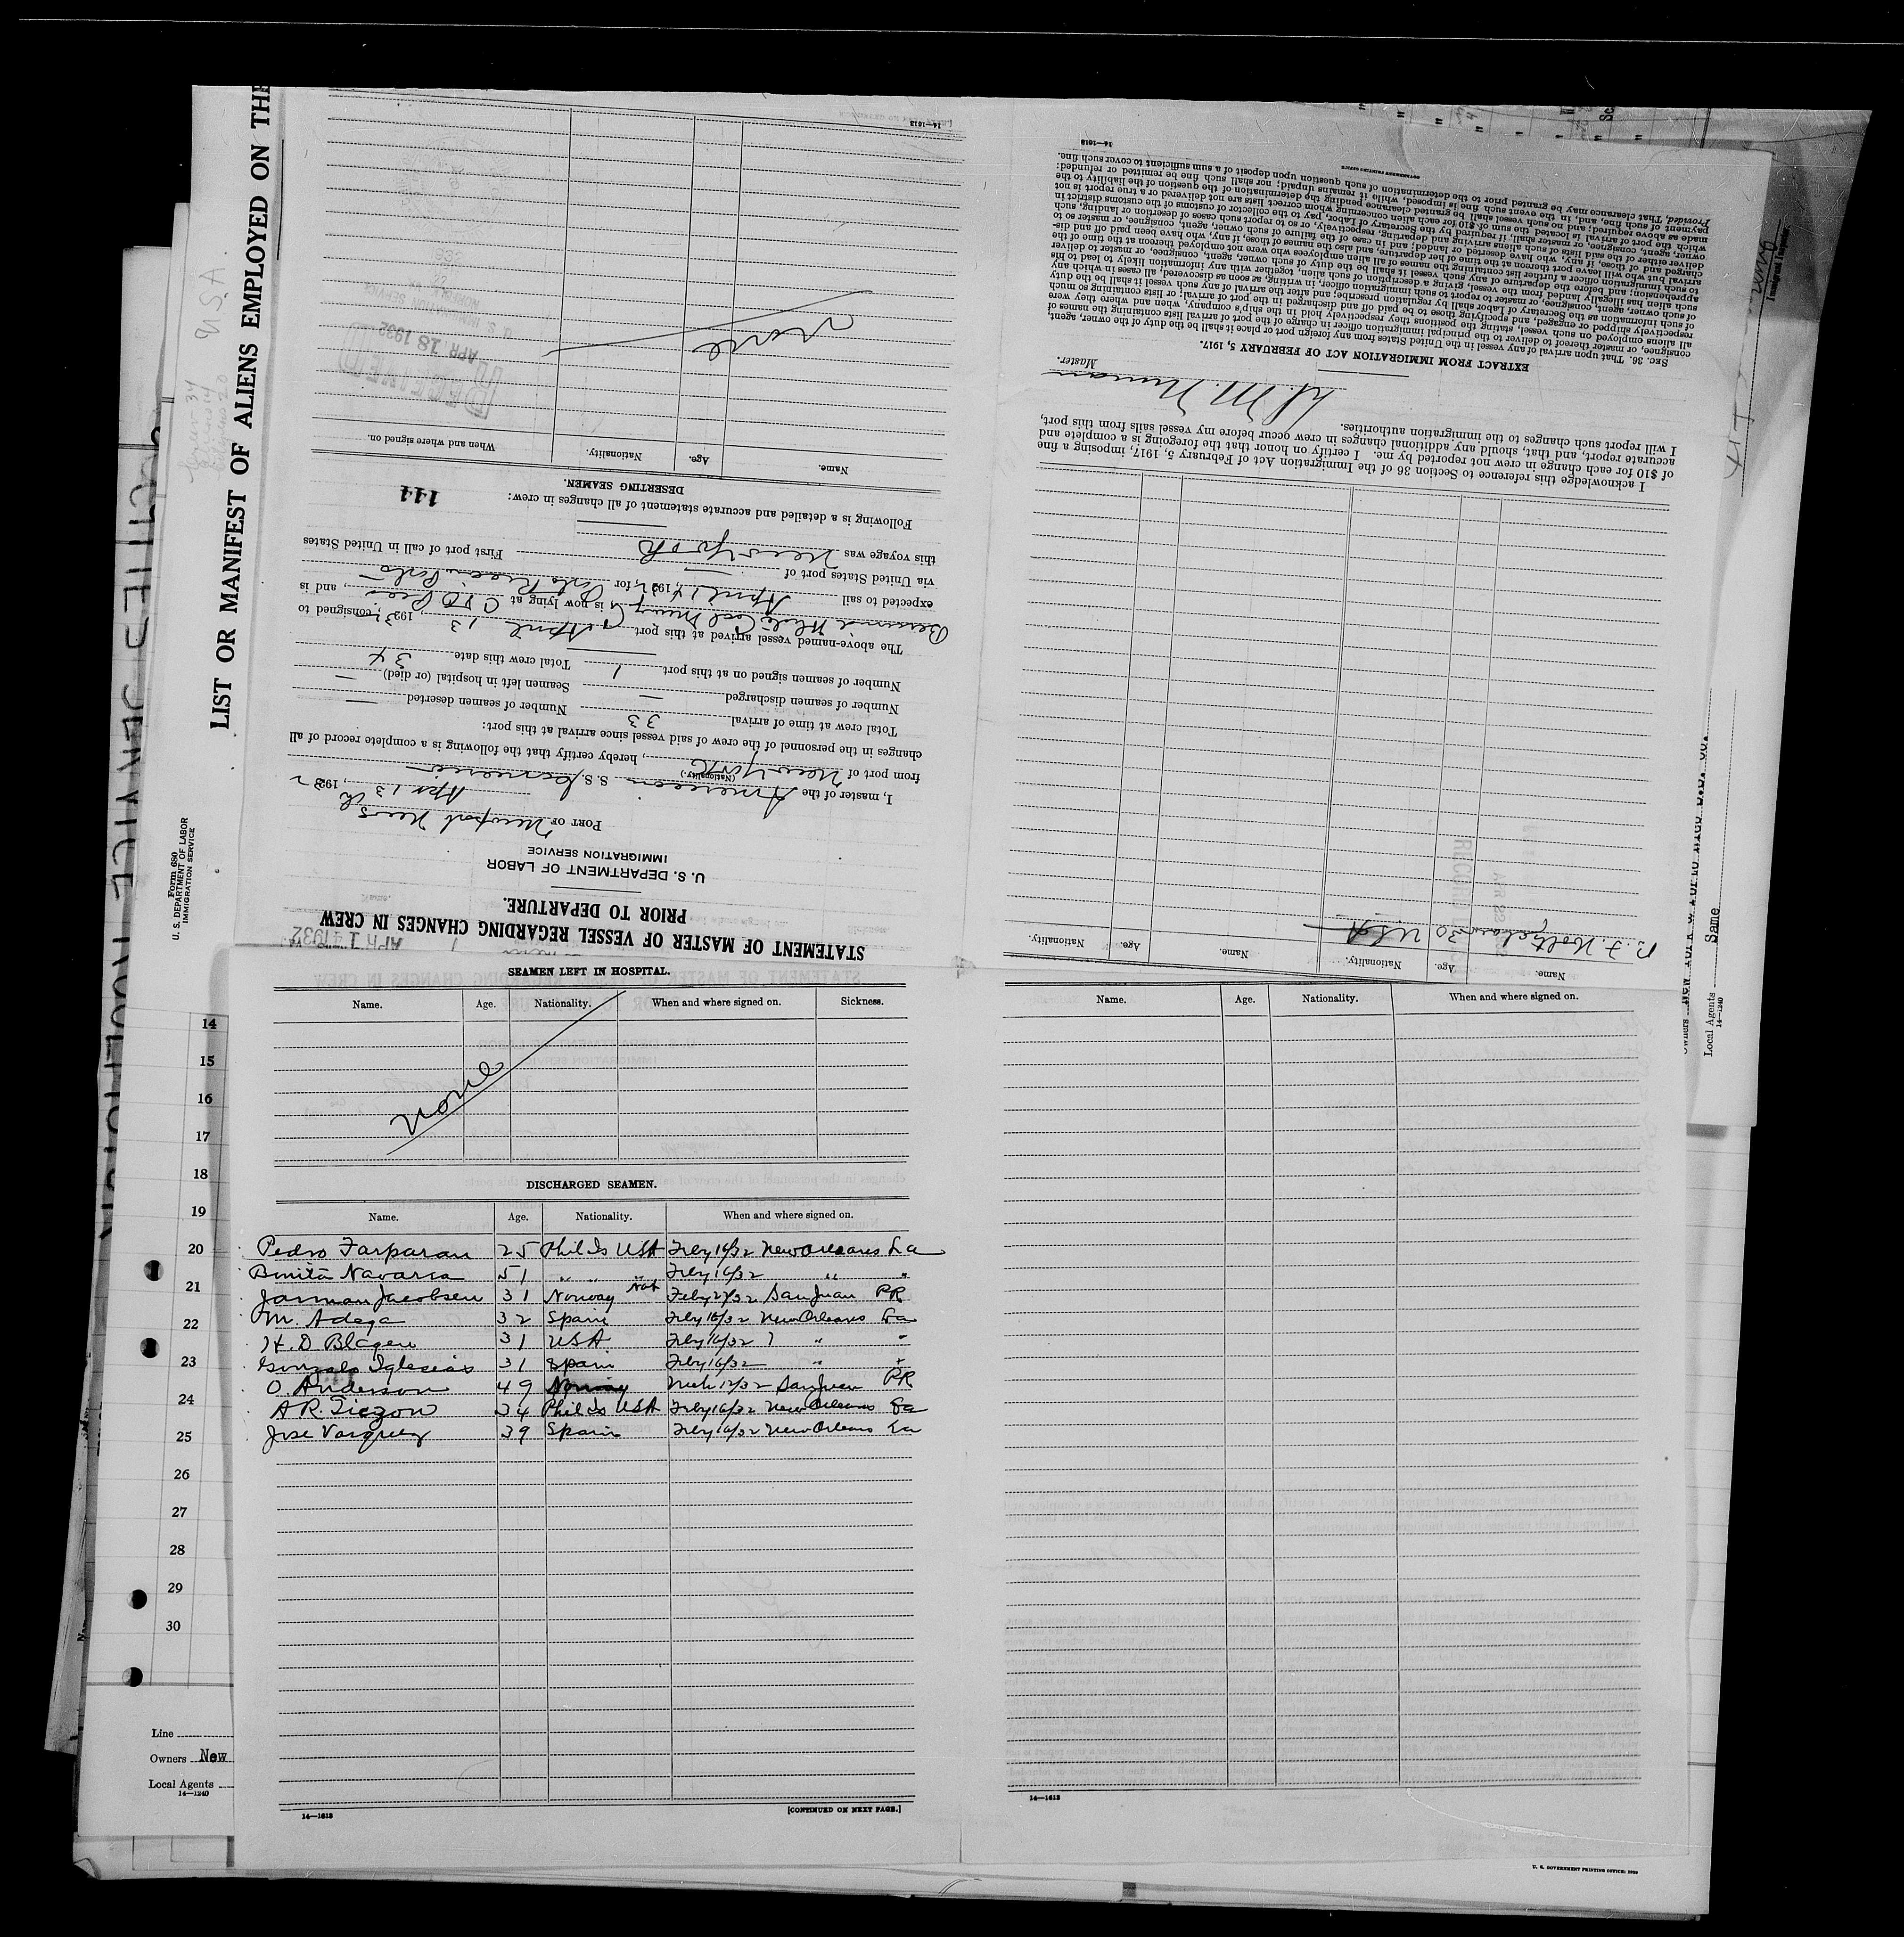 LIST OR MANIFEST OF ALIENS EMPLOYED ON THE
U.S.A.
Form 680
U. S. DEPARTMENT OF LABOR
IMMIGRATION SERVICE
STATEMENT OF MASTER OF VESSEL REGARDING CHANGES IN CREW
PRIOR TO DEPARTURE.
U. S. DEPARTMENT OF LABOR
IMMIGRATION SERVICE
PORT OF Newport News
Apr 13th, 1932
I, master of the American S. S.
(Nationality.)
from port of New York, hereby certify that the following is a complete record of all
changes in the personnel of the crew of said vessel since arrival at this port:
Total crew at time of arrival 33 Number of seamen deserted —
Number of seamen discharged — Seamen left in hospital (or died) —
Number of seamen signed on at this port 1 Total crew this date 34
The above-named vessel arrived at this port April 13, 1932, consigned to
Berwind White Coal Mining Co is now lying at C & O Pier, and is
expected to sail April 14, 1932, for
via United States port of —
this voyage was New York First port of call in United States
Following is a detailed and accurate statement of all changes in crew:
144
DESERTING SEAMEN.
Name. Age. Nationality. When and where signed on.
None
RECEIVED
APR 18 1932
U. S. IMMIGRATION SERVICE
14—1613
Name. Age. Nationality. Name. Age. Nationality.
30 USA
I acknowledge this reference to Section 36 of the Immigration Act of February 5, 1917, imposing a fine
of $10 for each change in crew not reported by me. I certify on honor that the foregoing is a complete and
accurate report, and that, should any additional changes in crew occur before my vessel sails from this port,
I will report such changes to the immigration authorities.
Master.
EXTRACT FROM IMMIGRATION ACT OF FEBRUARY 5, 1917.
SEC. 36. That upon arrival of any vessel in the United States from any foreign port or place it shall be the duty of the owner, agent,
consignee, or master thereof to deliver to the principal immigration officer in charge of the port of arrival lists containing the names of
all aliens employed on such vessel, stating the positions they respectively hold in the ship's company, when and where they were
respectively shipped or engaged, and specifying those to be paid off and discharged in the port of arrival; or lists containing so much
of such information as the Secretary of Labor shall by regulation prescribe; and after the arrival of any such vessel it shall be the duty
of such owner, agent, consignee, or master to report to such immigration officer, in writing, as soon as discovered, all cases in which any
such alien has illegally landed from the vessel, giving a description of such alien, together with any information likely to lead to his
apprehension; and before the departure of any such vessel it shall be the duty of such owner, agent, consignee, or master to deliver
to such immigration officer a further list containing the names of all alien employees who were not employed thereon at the time of the
arrival but who will leave port thereon at the time of her departure, and also the names of those, if any, who have been paid off and dis-
charged and of those, if any, who have deserted or landed; and in case of the failure of such owner, agent, consignee, or master so to
deliver either of the said lists of such aliens arriving and departing, respectively, or so to report such cases of desertion or landing, such
owner, agent, consignee, or master shall, if required by the Secretary of Labor, pay to the collector of customs of the customs district in
which the port of arrival is located the sum of $10 for each alien concerning whom correct lists are not delivered or a true report is not
made as above required; and no such vessel shall be granted clearance pending the determination of the question of the liability to the
payment of such fine, and, in the event such fine is imposed, while it remains unpaid; nor shall such fine be remitted or refunded:
Provided, That clearance may be granted prior to the determination of such question upon deposit of a sum sufficient to cover such fine.
GOVERNMENT PRINTING OFFICE
14—1613
Immigrant Inspector.
Local Agents Same
14—1240
SEAMEN LEFT IN HOSPITAL.
Name. Age. Nationality. When and where signed on. Sickness.
None
DISCHARGED SEAMEN.
Name. Age. Nationality. When and where signed on.
Pedro Farparan 25 Phil Is USA Feby 16/32 New Orleans La
Binita Navarra 51 " " " Feby 16/32 " "
Jarman Jacobsen 31 Norway Nat Feby 27/32 San Juan PR
M. Adega 32 Spain Feby 16/32 New Orleans La
H. D Blagen 31 USA Feby 16/32 " "
Gonzalo Iglesias 31 Spain Feby 16/32 " "
O. Anderson 49 Norway Mch 12/32 San Juan PR
A R. Tiezon 34 Phil Is USA Feby 16/32 New Orleans La
Jose Vasquez 39 Spain Feby 16/32 New Orleans La
14—1613
[CONTINUED ON NEXT PAGE.]
Name. Age. Nationality. When and where signed on.
14—1613
U. S. GOVERNMENT PRINTING OFFICE: 1930
14
15
16
17
18
19
20
21
22
23
24
25
26
27
28
29
30
Line
Owners New
Local Agents
14—1240